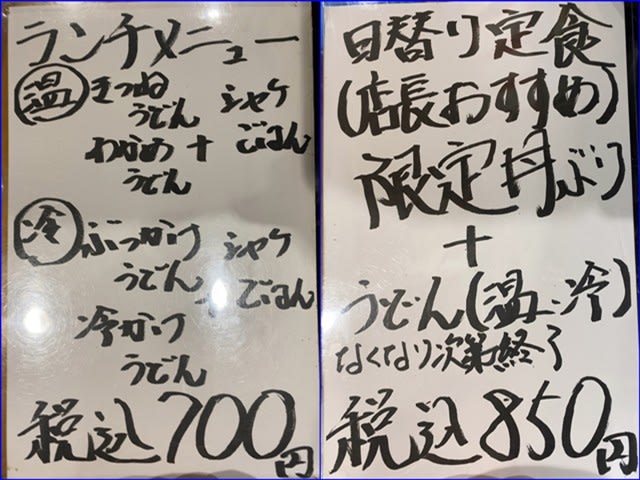 ランチメニュー
温 きつね
うどん
わかめ
うどん
+
シャケ
ごはん
冷 ぶっかけ
うどん
冷かけ
うどん
+
シャケ
ごはん
税込700円
日替り定食
(店長おすすめ)
限定丼ぶり
+
うどん(温・冷)
なくなり次第終了
税込850円